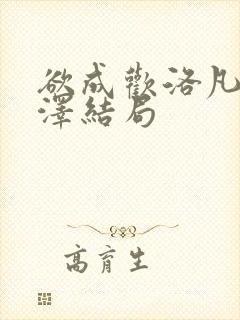 欲成歡洛凡
澤結局
高育生